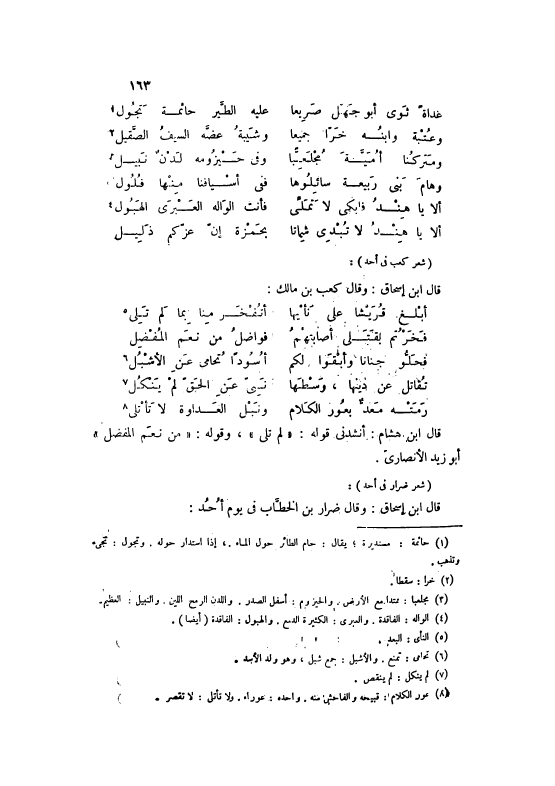 ١٦٣
غداة ثوى أبو جهل صريعا عليه الطير حائمة تجول١
وعتبة وابنه خرّا جميعا وشيبة عضه السيف الصقيل٢
ومتركنا أميّة مجلعبّا وفى حيزومه لدن نبيل٣
وهام بنى ربيعة سائلوها فى أسيافنا منها فلول
ألا يا هند فابكى لا تملّى فأنت الواله العبرى الهبول٤
ألا يا هند لا تبدى شماتا بحمزة إنّ عزّكم ذليل
( شعر كعب فى أحد ) :
قال ابن إسحاق : وقال كعب بن مالك :
أبلغ قريشا على نأيها أتفخر منا بما لم تلى٥
فخرتم بقتلى أصابتهم فواضل من نعم المفضل
فحلّوا جنانا وأبقوا لكم أسودا تحامى عن الأشبل٦
تقاتل عن دينها ، وسطها نبىّ عن الحقّ لم ينكل٧
رمته معدّ بعور الكلام ونبل العداوة لا تأتلى٨
قال ابن هشام : أنشدنى قوله : « لم تلى » ، وقوله : « من نعم المفضل »
أبو زيد الأنصارىّ .
( شعر ضرار فى أحد ) :
قال ابن إسحاق : وقال ضرار بن الخطّاب فى يوم أحد :
(١) حائمة : مستديرة ؛ يقال : حام الطائر حول الماء ، إذا استدار حوله . وتجول : تجىء
وتذهب .
(٢) خرا : سقطا .
(٣) مجلعبا : ممتدا مع الأرض . والحيزوم : أسفل الصدر . واللدن الرمح اللين . والنبيل : العظيم .
(٤) الواله : الفاقدة . والعبرى : الكثيرة الدمع . والهبول : الفاقدة ( أيضا ) .
(٥) النأى : البعد .
(٦) تحامى : تمنع . والأشبل : جمع شبل ، وهو ولد الأسد .
(٧) لم ينكل : لم ينقص .
(٨) عور الكلام : قبيحه والفاحش منه . واحده : عوراء . ولا تأتلى : لا تقصر .